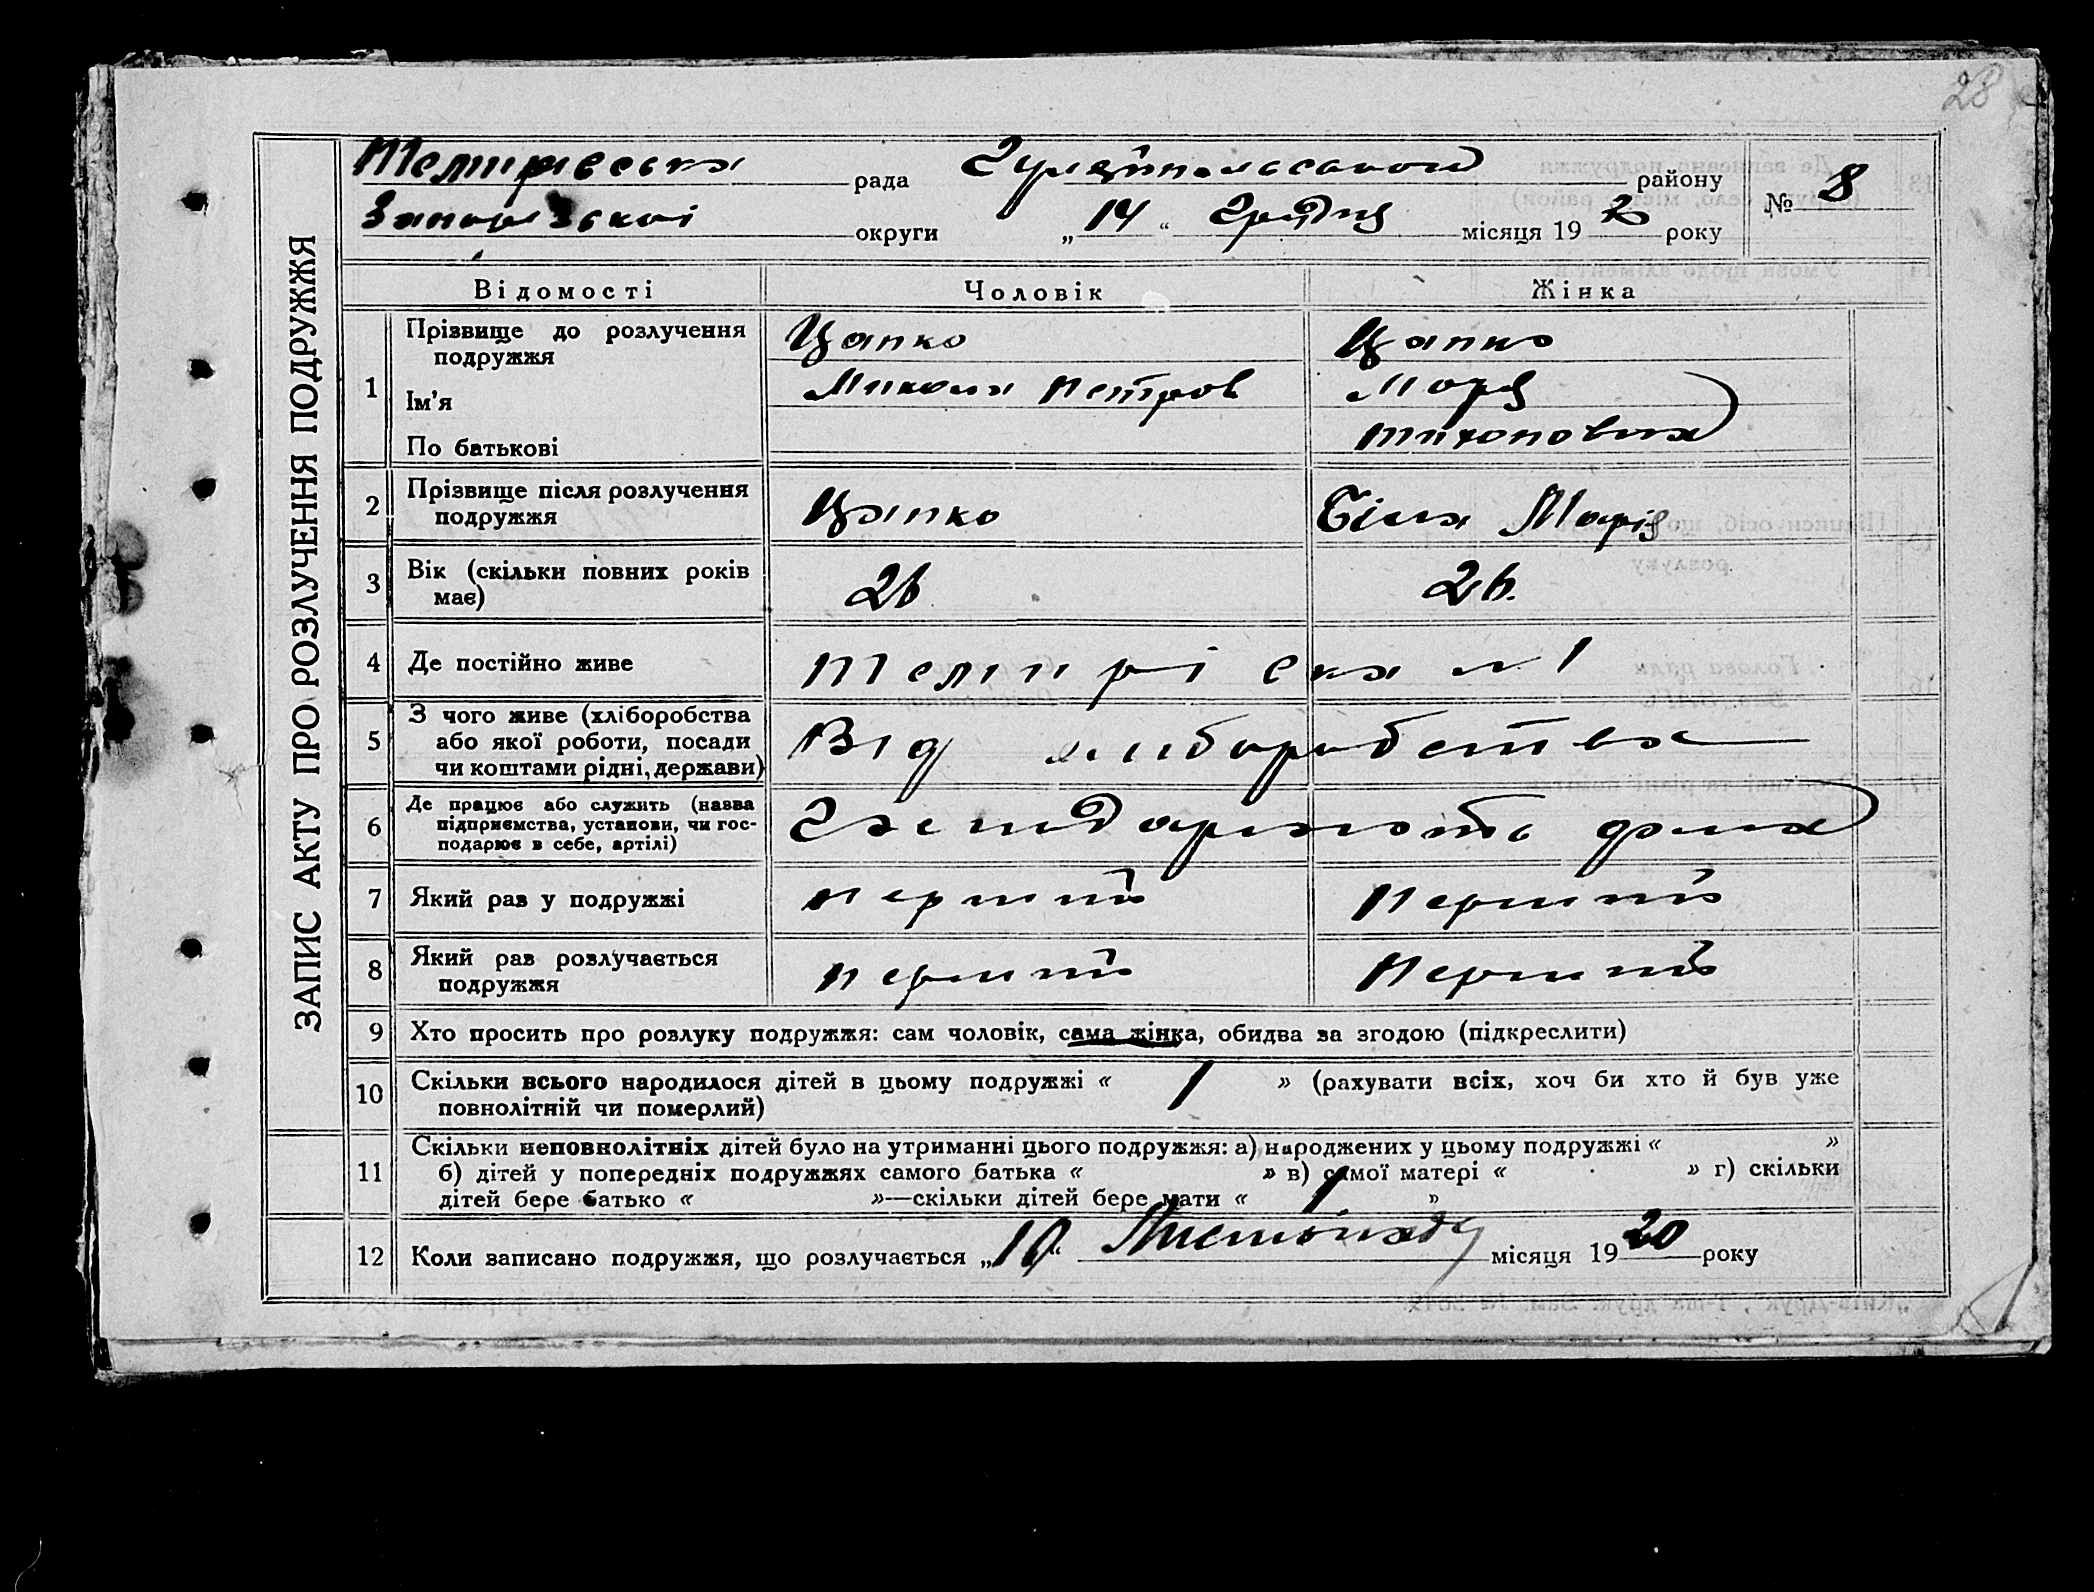 28
ЗАПИС АКТУ ПРО РОЗЛУЧЕННЯ ПОДРУЖЖЯ
Темирівська рада Гуляйпольського району № 8
Запорізької округи „14“ Грудня місяця 19 року
Відомості Чоловік Жінка
1 Прізвище до розлучення подружжя Цапко Цапко
Ім'я Микола Петров Маря
По батькові Тихоновна
2 Прізвище після розлучення подружжя Цапко Біла Марія
3 Вік (скільки повних років має) 26 26.
4 Де постійно живе Темирівка №1
5 З чого живе (хліборобства
або якої роботи, посади
чи коштами рідні, держави) Від хліборобства
6 Де працює або служить (назва
підприємства, установи, чи гос-
подарює в себе, артілі) дома
7 Який раз у подружжі перший Перший
8 Який раз розлучається
подружжя перший Перший
9 Хто просить про розлуку подружжя: сам чоловік, сама жінка, обидва за згодою (підкреслити)
10 Скільки всього народилося дітей в цьому подружжі « 1 » (рахувати всіх, хоч би хто й був уже
повнолітній чи померлий)
11 Скільки неповнолітніх дітей було на утриманні цього подружжя: а) народжених у цьому подружжі « »
б) дітей у попередніх подружжях самого батька « » в) самої матері « » г) скільки
дітей бере батько « »—скільки дітей бере мати « 1 »
12 Коли записано подружжя, що розлучається „10“ Листопада місяця 1920 року